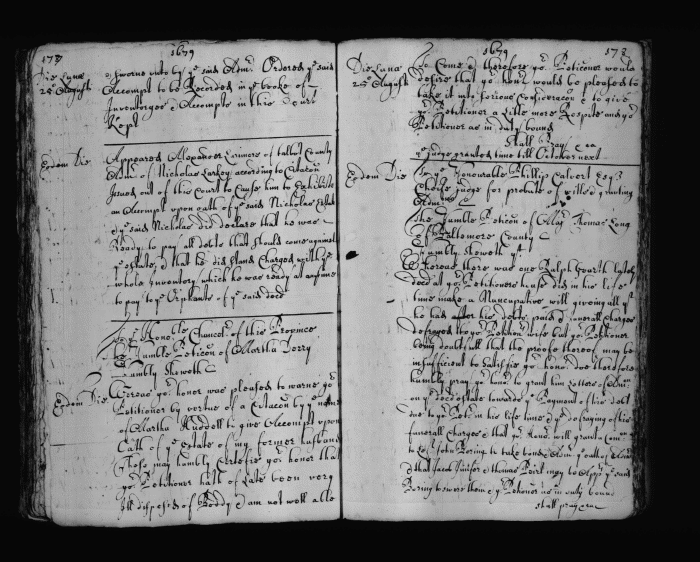 1679
Die Lunæ
25o August
& sworne unto by ye said Admr Ordered ye said
Accompt to be Recorded in ye booke of
Inventoryes & Accompts in this Court
Kept
Eodem Die
Appeared Alexander of Talbot County
Admr of Nicholas according to Citacon
Issued out of this Court to Cause him to Exhibite
an Accompt upon oath of ye said Nicholas Estate
ye said Nicholas did declare that he was
Ready to pay all debts that should come against
ye estate, & that he did stand Charged with ye
whole Inventory which he was ready at any time
to pay to ye Orphants of ye said decd
To ye Honoble Chancelr of this Province
The Humble Peticon of Martha
Humbly Sheweth
Eodem Die
Whereas yor honor was pleased to warne yor
Petitioner by vertue of a Citacon by ye name
of Martha Ruddell to give Accompt upon
Oath of ye estate of my former husband
These may humbly Certifie yor honor that
yor Petitioner hath of Late been very
Ill disposed of Boddy & am not well able
1679
178
Die Lunæ
25o August
To Come & therefore yor Peticoner would
desire that yor honor would be pleased to
take it into serious Consideracon & to give
yor Petitioner a Little more Respite and yor
Petitioner as in duty bound
Shall Pray &ca
ye judge granted time till October next
Eodem Die
To ye Honourable Phillip Calvert Esqr
Cheife judge for probate of wills & granting
Admns
The Humble Peticon of Majr Thomas Long
Of Baltemore County
Humbly Sheweth yt
Whereas there was one Ralph lately
decd at yor Petitioners house did in his life
time make a Nuncupative will giving all yt
he had after his debts paid & funerall Charges
defrayed to yor Petitioners wife but yor Petitioner
being doubtfull that the proofe thereof may be
insufficient to Satisfie yor honor doe therefore
humbly pray yor honor to grant him Letters of Admn
on ye decds estate towards ye Payment of the debt
due to yor Petr in his life time & ye defraying of his
funerall Charges & that yor Honor will grant a Comn
to John Boring to take bonds & Oath
& that Jacob & Thomas may to Appr ye said
Boring to sweare them & yor Petitioner as in duty bound
shall pray &ca